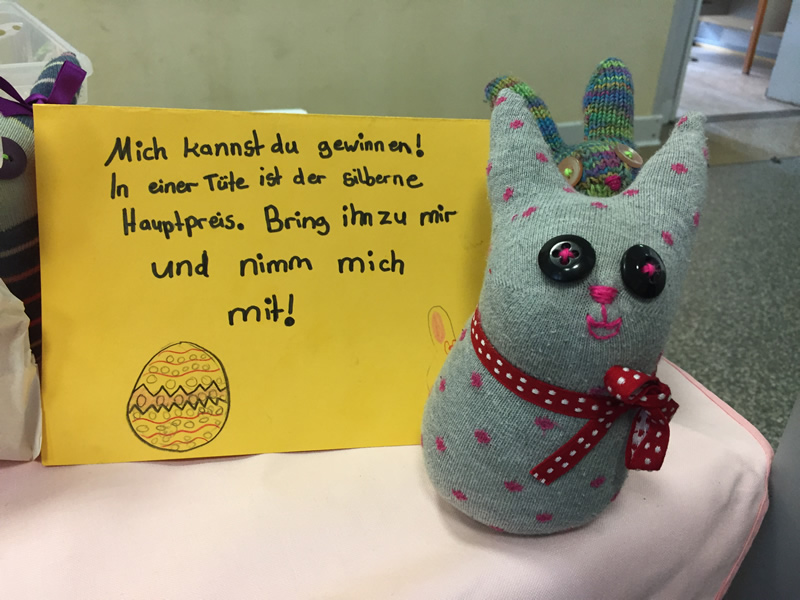 Mich kannst du gewinnen!
In einer Tüte ist der silberne
Hauptpreis. Bring ihn zu mir
und nimm mich
mit!